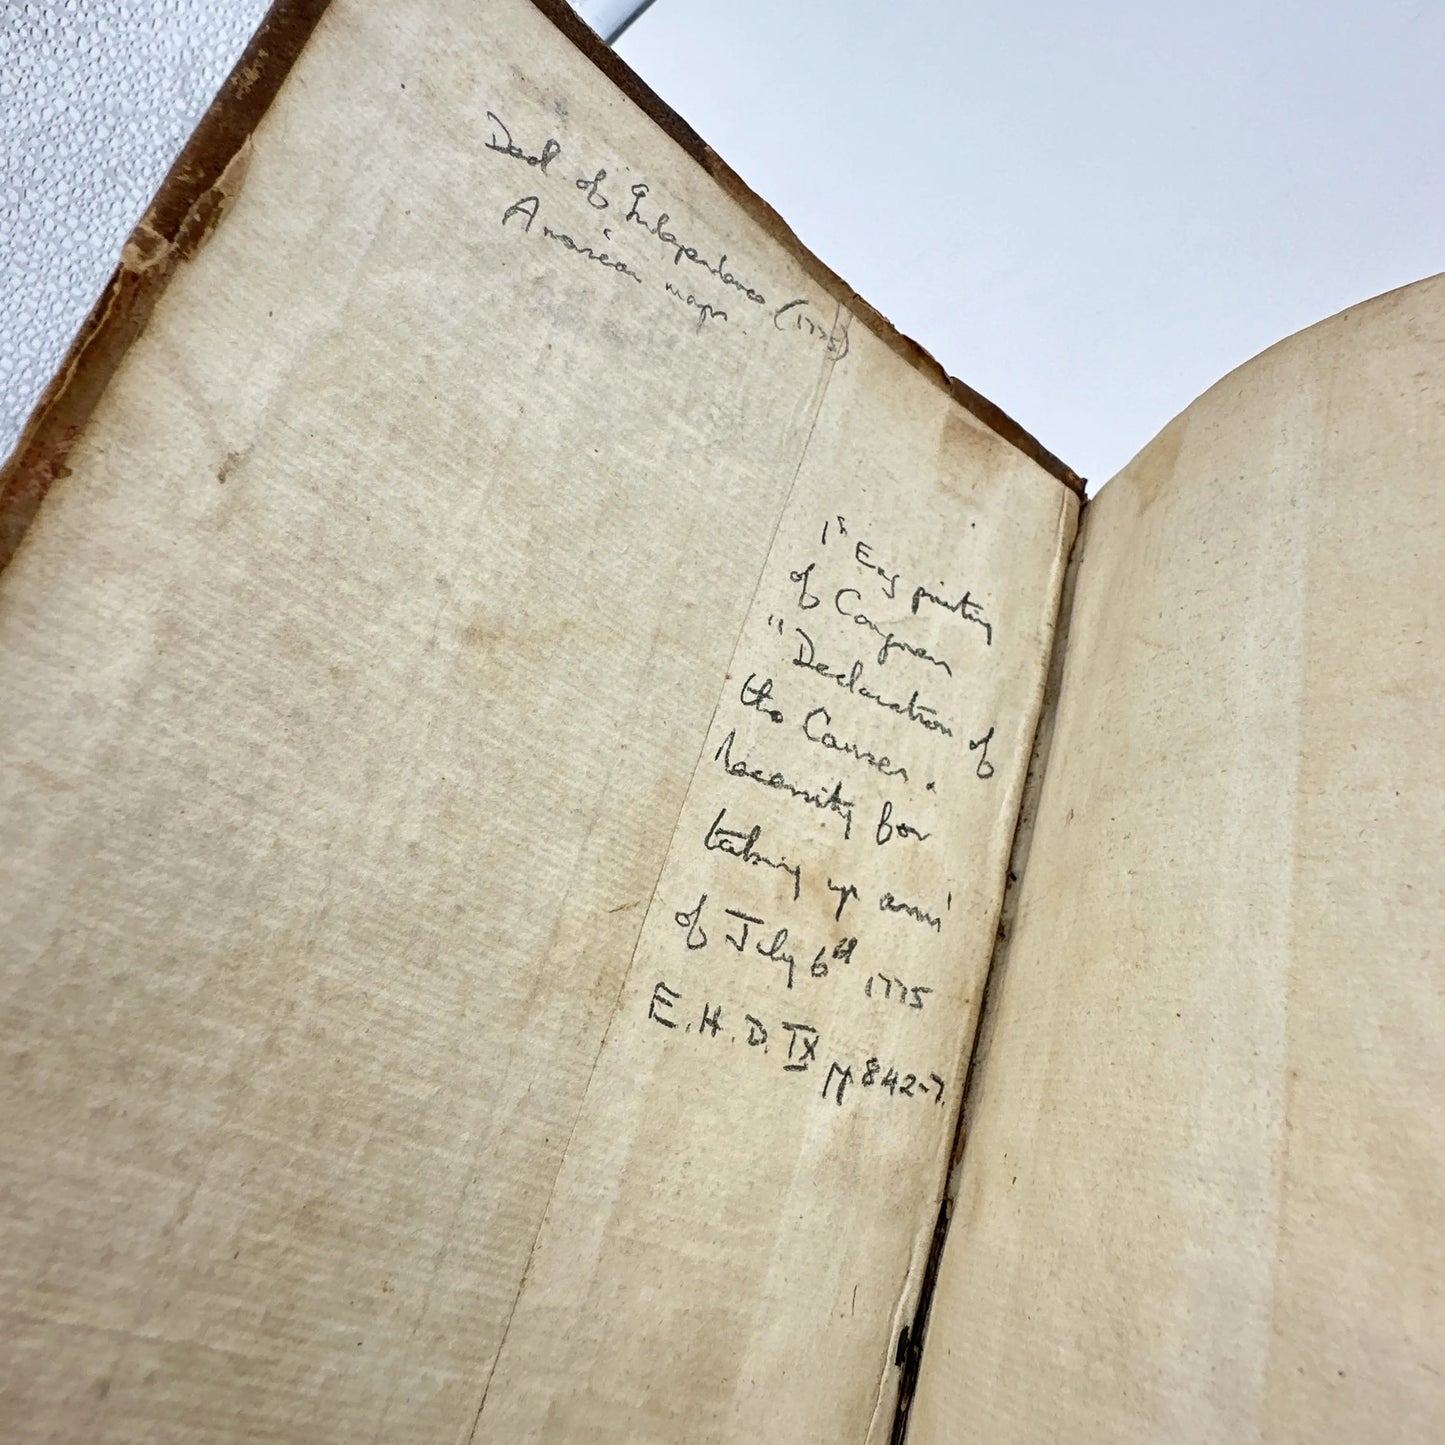 Decl of Independence (1775)
American maps.
1st Eng printing
of Congress
"Declaration of
the Causes .
Necessity for
taking up arms'
of July 6th 1775
E.H.D. IX pp 842-7.